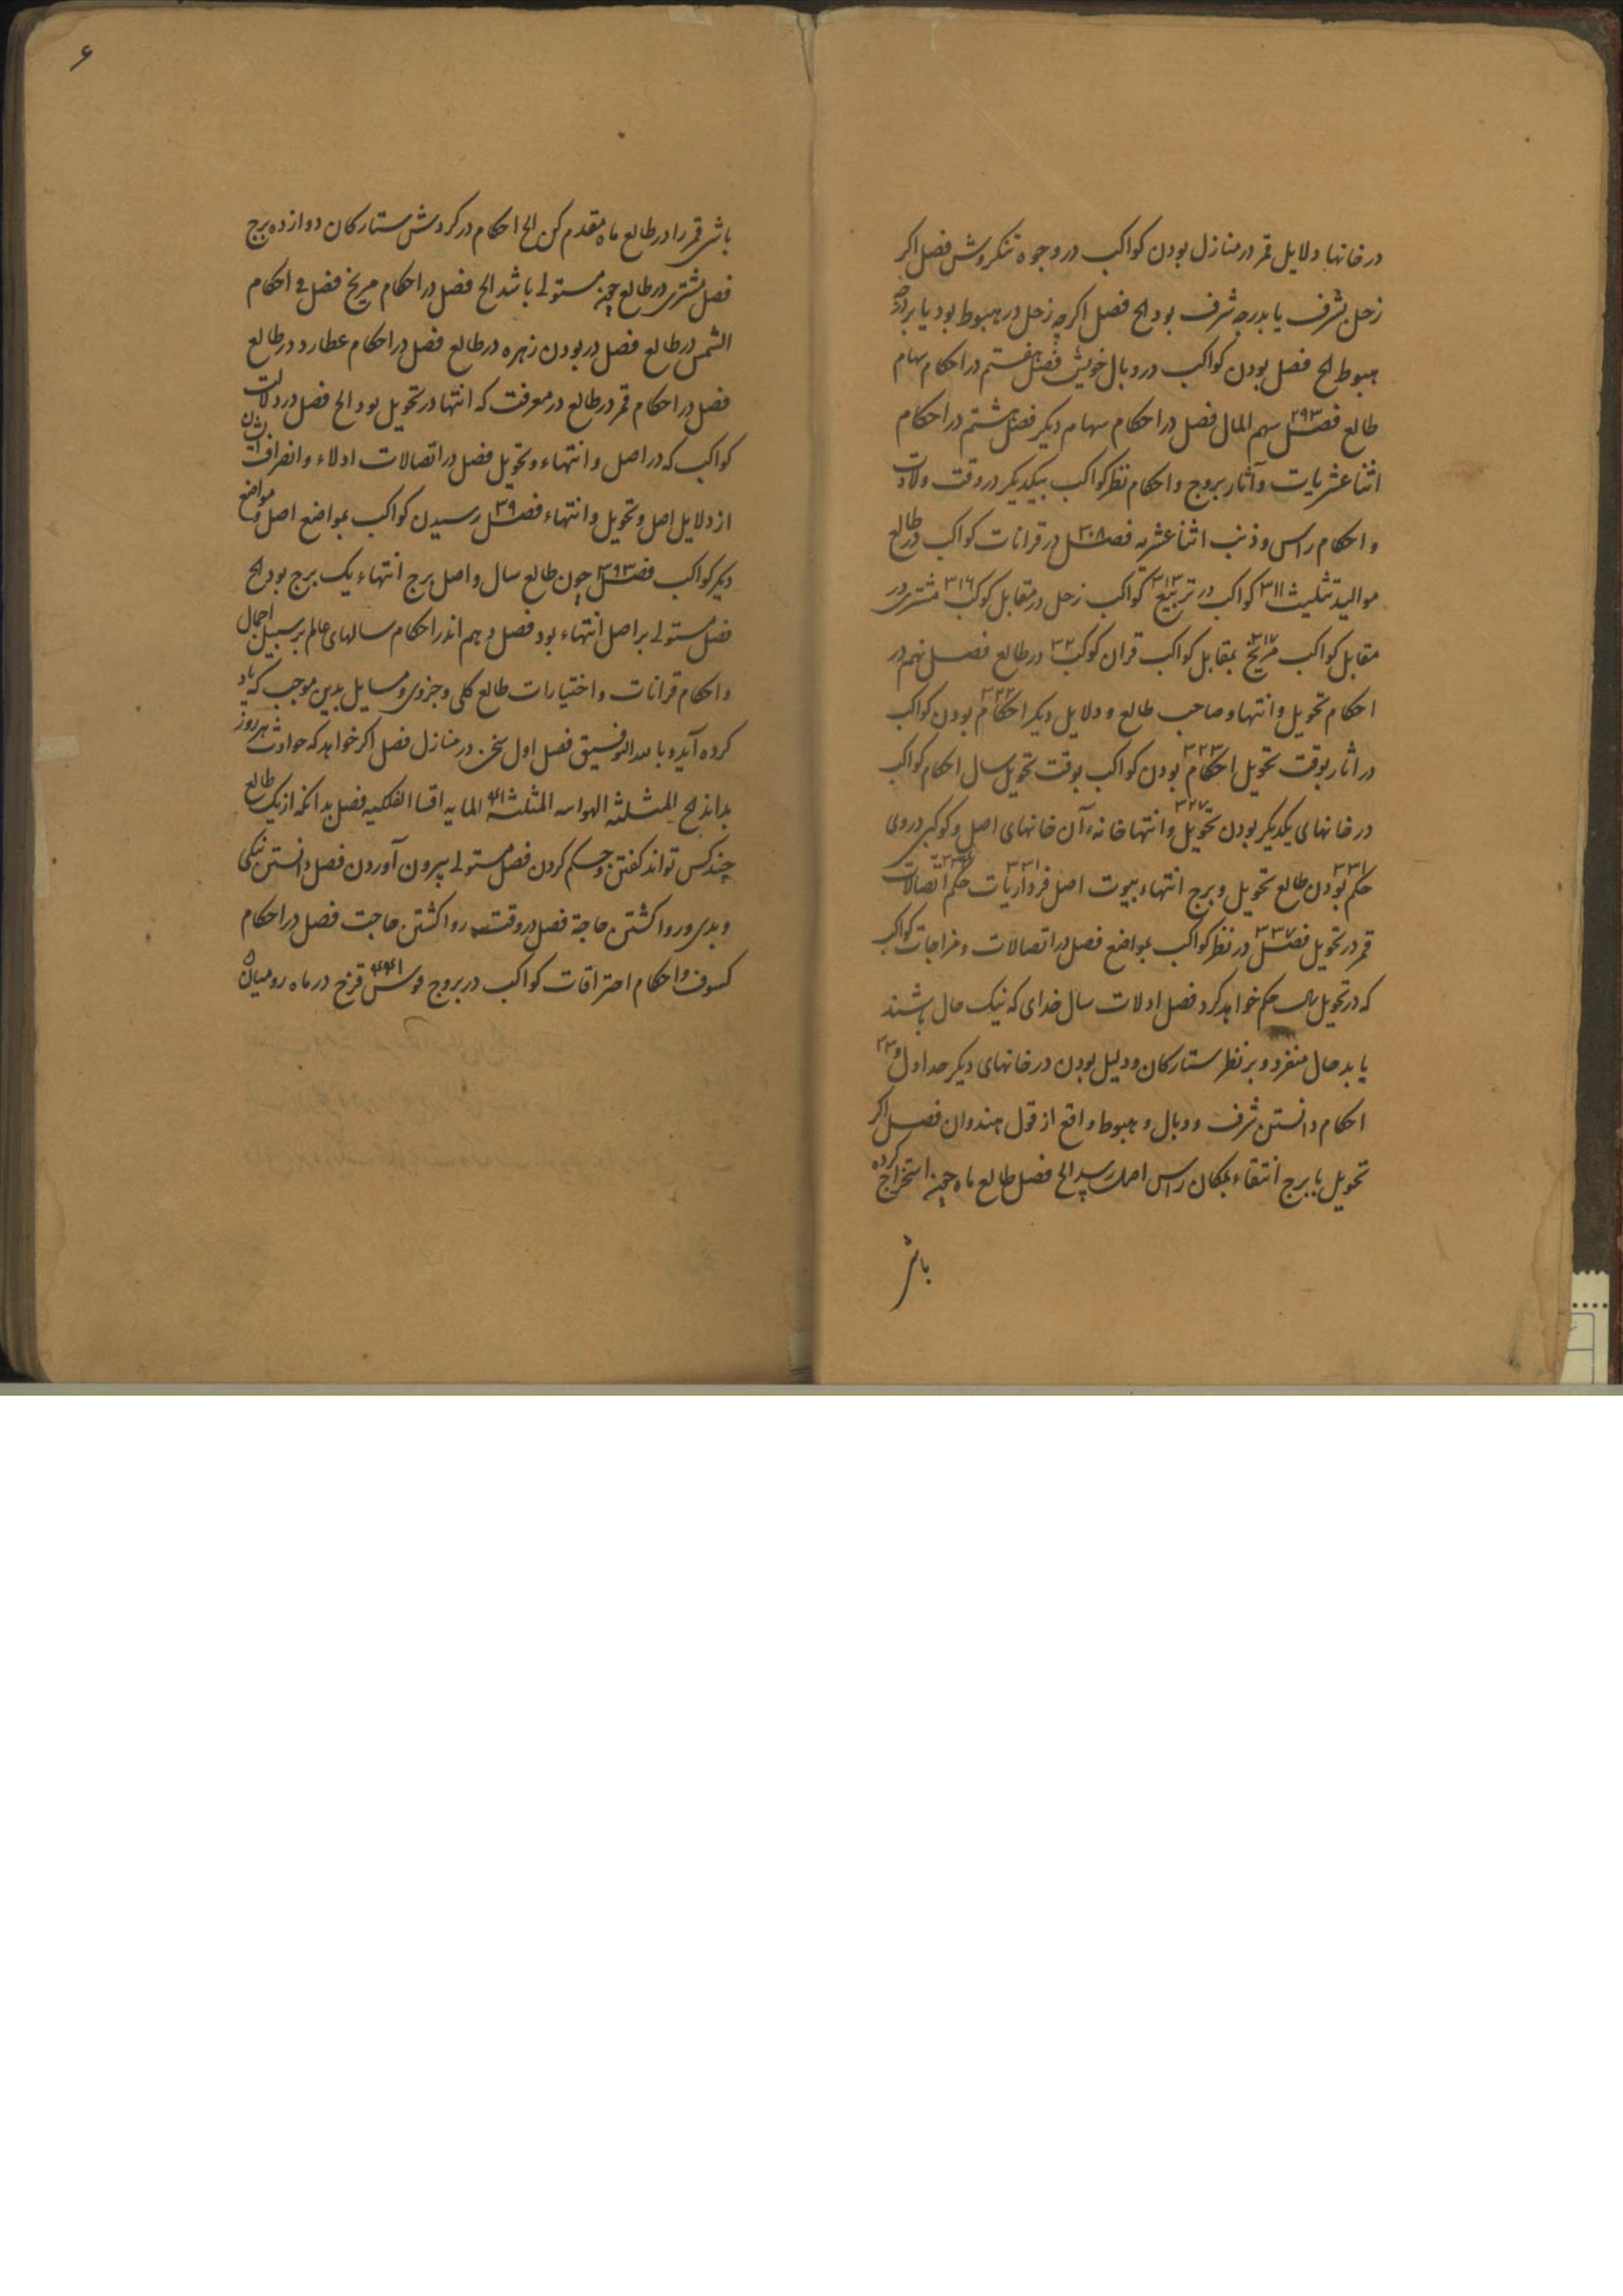 در خانها دلایل قمر در منازل بودن کواکب در وجوه تنکروش فصل اکر
زحل بشرف یا بدرجه شرف بود الح فصل اکرچه زحل در هبوط بود یا بردرجه
هبوط الح فصل بودن کواکب در وبال خویش فصل هفتم در احکام سهام
طالع فصل ۲۹۳ سهم المال فصل در احکام سهام دیکر فصل هشتم در احکام
اثنا عشریات و آثار بروج و احکام نظر کواکب بیکدیکر در وقت ولادت
و احکام راس و ذنب اثنا عشریه فصل ۳۰۸ در قرانات کواکب در طالع
موالید تثلیث ۳۱۱ کواکب در تربیع ۳۱۳ کواکب زحل در مقابل کوکب ۳۱۶ مشتری در
مقابل کواکب مریخ ۳۱۷ بمقابل کواکب قران کوکب ۳۲ در طالع فصل نهم در
احکام تحویل و انتها و صاحب طالع و دلایل دیکر احکام ۳۲۲ بودن کواکب
در اثار بوقت تحویل احکام ۳۲۳ بودن کواکب بوقت تحویل سال احکام کواکب
در خانهای یکدیکر بودن تحویل ۳۲۷ و انتها خانه آن خانهای اصل و کوکبی در وی
حکم بودن ۳۳۱ طالع تحویل و برج انتهاء بیوت اصل فرداریات ۳۳۱ حکم اتصالات
قمر در تحویل فصل ۳۳۷ در نظر کواکب بمواضع فصل در اتصالات و مزاجات کواکب
که در تحویل حکم خواهد کرد فصل ادلات سال خدای که نیک حال باشند
یا بد حال منفرد و بر نظر ستارکان و دلیل بودن در خانهای دیکر جداول و
احکام دانستن شرف و وبال و هبوط واقع از قول هندوان فصل اکر
تحویل یا برج انتهاء بمکان راس اصل رسید الح فصل طالع ماه چون استخراج کرده
باشی
۶
باشی قمر را در طالع ماه مقدم کن الح احکام در کردش ستارکان دوازده برج
فصل مشتری در طالع چون مستولی باشد الح فصل در احکام مریخ فصل فی احکام
الشمس در طالع فصل در بودن زهره در طالع فصل در احکام عطارد در طالع
فصل در احکام قمر در طالع در معرفت که انتها در تحویل بود الح فصل در دلالت
کواکب که در اصل و انتهاء و تحویل فصل در اتصالات ادلاء و انصرافات ایشان
از دلایل اصل و تحویل و انتهاء فصل ۳۹ رسیدن کواکب بمواضع اصل و مواضع
دیکر کواکب فصل ۳۹۳ چون طالع سال و اصل برج انتهاء یک برج بود الح
فصل مستولی بر اصل انتهاء بود فصل دهم اندر احکام سالهای عالم بر سبیل اجمال
و احکام قرانات و اختیارات طالع کلی و جزوی و مسایل بدین موجب که یاد
کرده آید و بالله التوفیق فصل اول سخن در منازل فصل اکر خواهد که حوادث هر روز
بداند الح المثلثه الهوایه المثلثه المایه اقسا الفلکیه فصل بدانکه از یک طالع
چند کس تواند کفتن و حکم کردن فصل مستولی بیرون آوردن فصل دانستن نیکی
و بدی و روا کشتن حاجة فصل در وقت روا کشتن حاجت فصل در احکام
کسوف و احکام احتراقات کواکب در بروج قوس قزح در ماه رومیان